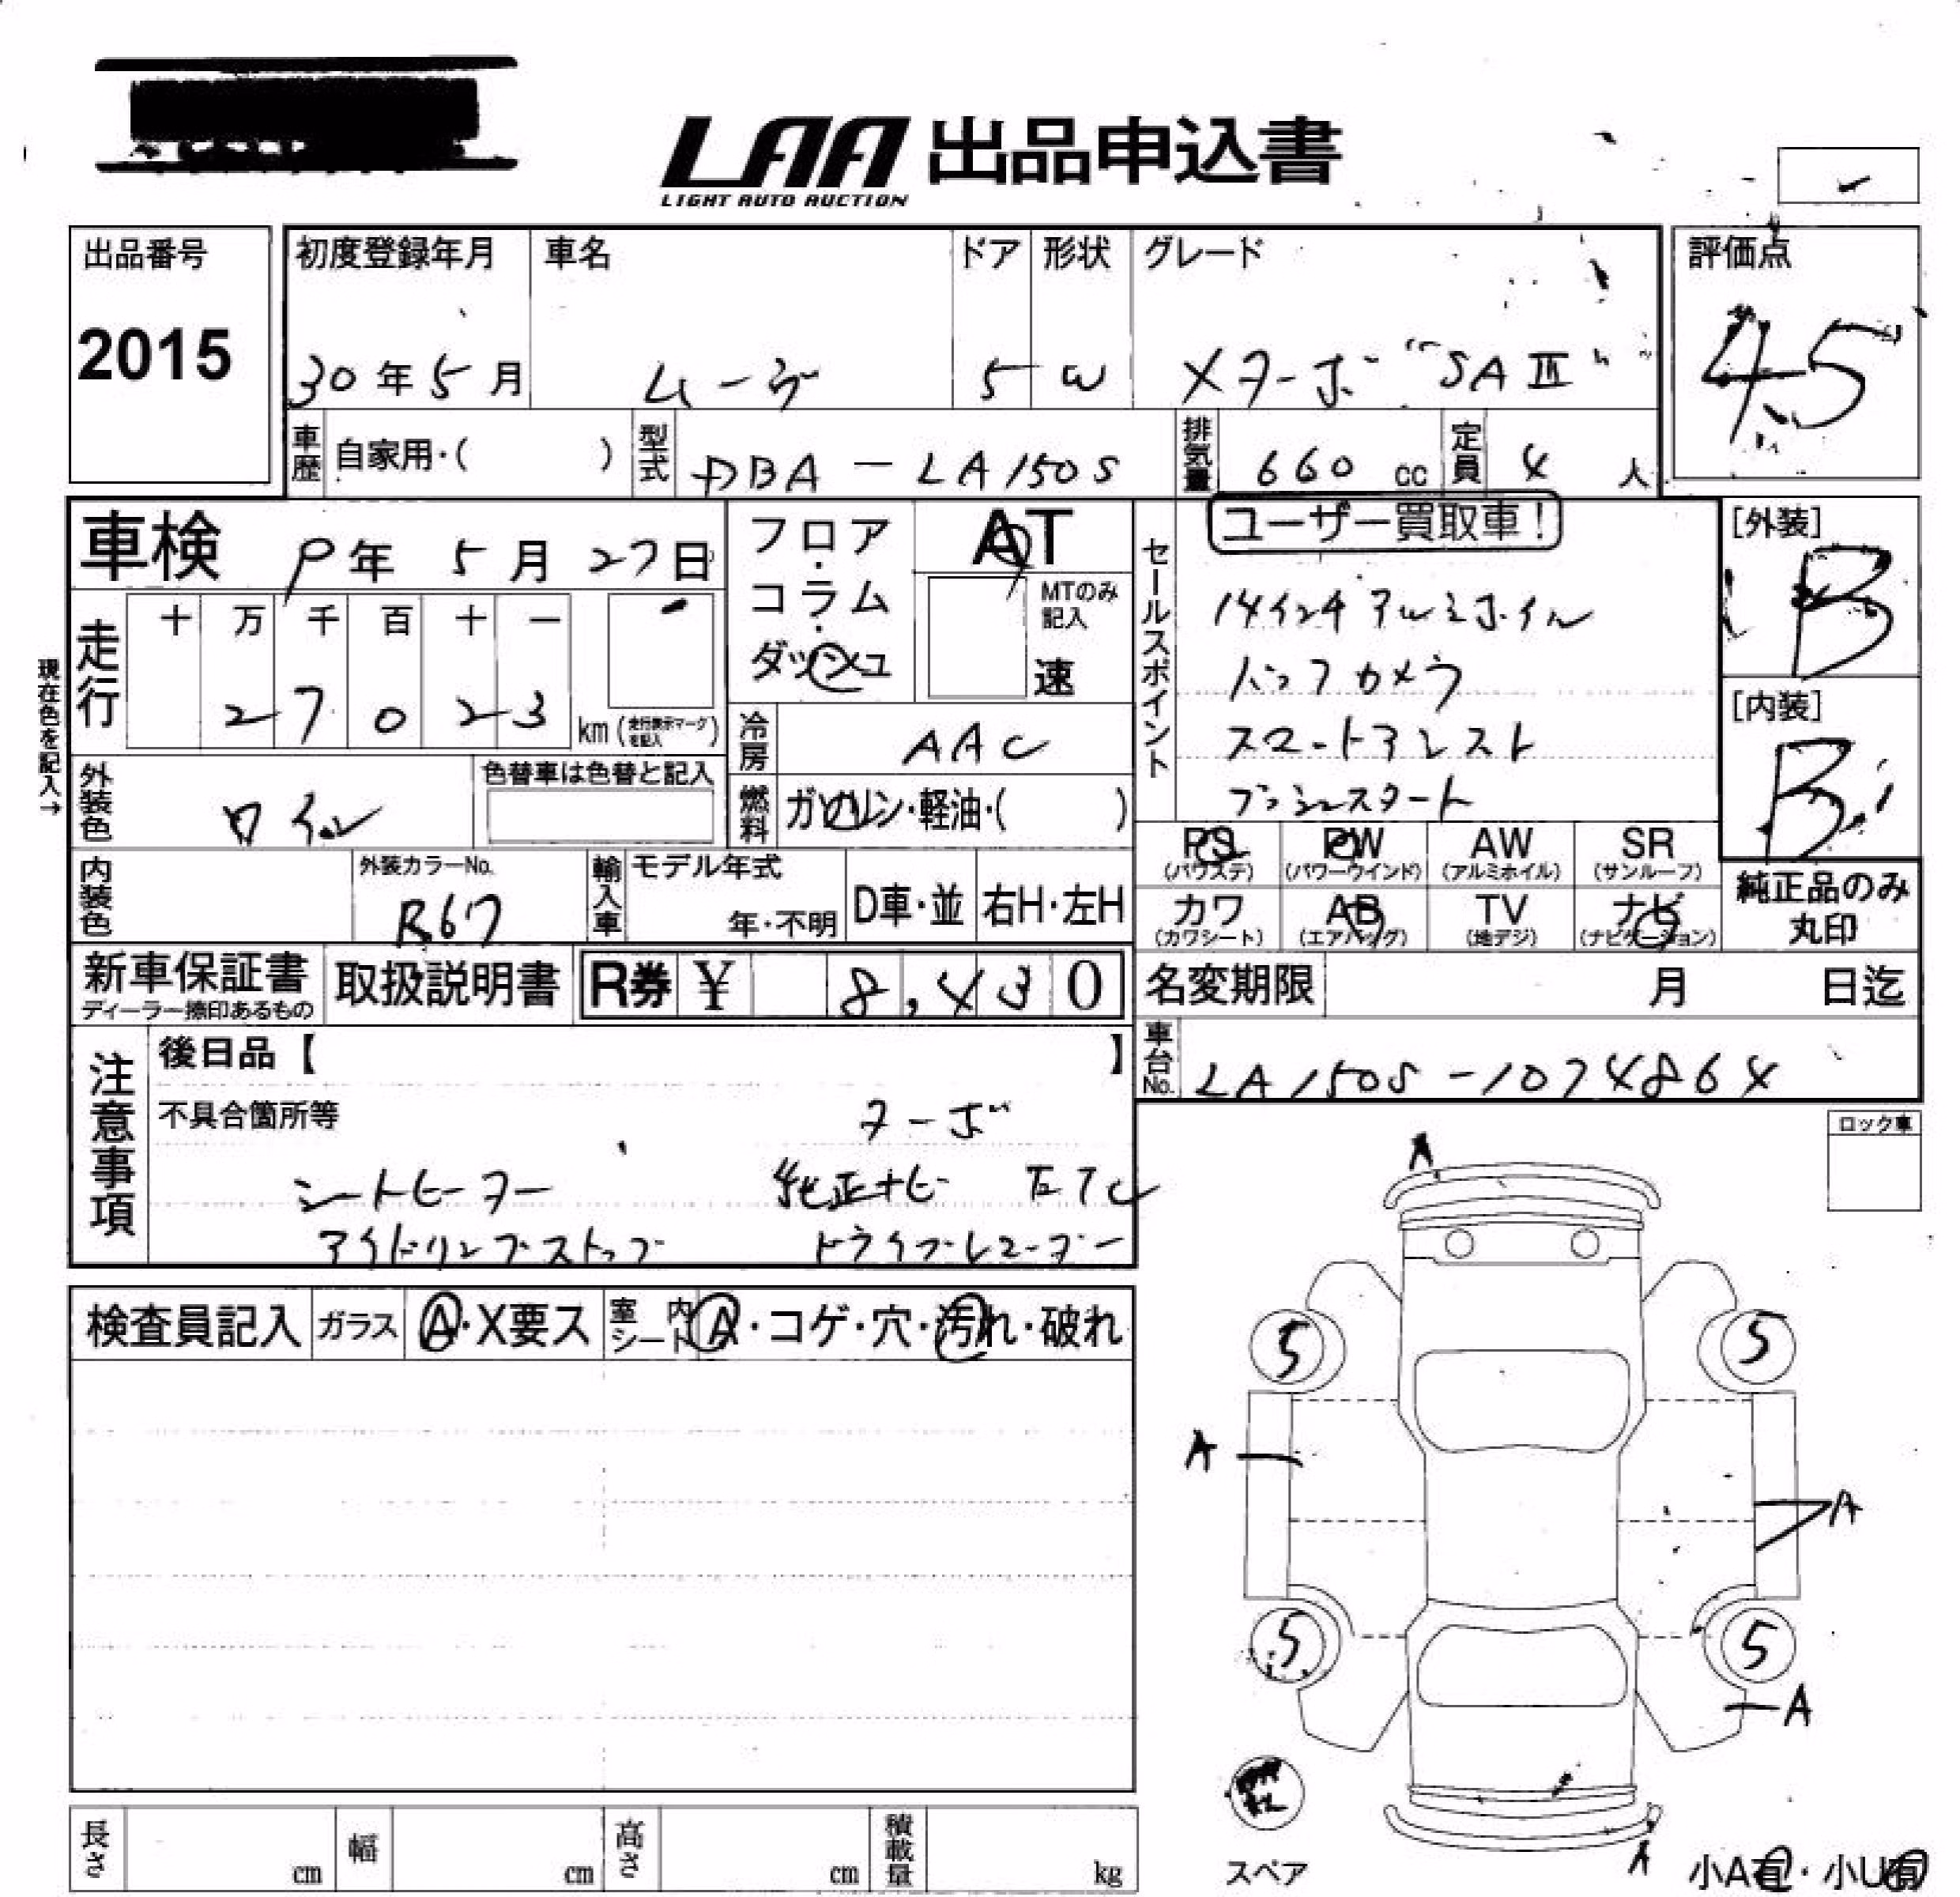 LAA 出品申込書
LIGHT AUTO AUCTION
出品番号
2015
初度登録年月
30年5月
車名
ムーヴ
ドア
5
形状
W
グレード
Xターボ "SAⅢ"
評価点
4.5
車歴 自家用・( )
型式 DBA-LA150S
排気量 660 cc
定員 4 人
車検 9年 5月 27日
現在色を記入→
走行 十 万 千 百 十 一
2 7 0 2 3 km (走行表示マークを記入)
フロア・コラム・ダッシュ
AT
MTのみ記入
速
冷房 AAC
燃料 ガソリン・軽油・( )
外装色 ワイン
色替車は色替と記入
内装色
外装カラーNo.
R67
輸入車 モデル年式
年・不明
D車・並
右H・左H
セールスポイント
ユーザー買取車!
14インチアルミホイル
バックカメラ
スマートアシスト
プッシュスタート
[外装]
B
[内装]
B
PS (パワステ) PW (パワーウインド) AW (アルミホイル) SR (サンルーフ)
カワ (カワシート) AB (エアバッグ) TV (地デジ) ナビ (ナビゲーション)
純正品のみ丸印
新車保証書
ディーラー捺印あるもの
取扱説明書
R券 ¥ 8,430
名変期限 月 日迄
車台No. LA150S-1074864
注意事項
後日品【 】
不具合箇所等
ターボ
シートヒーター 純正ナビ ETC
アイドリングストップ ドライブレコーダー
ロック車
検査員記入 ガラス A・X要ス 室内シート A・コゲ・穴・汚れ・破れ
A
5 5
A
A
5 5
A
A
スペア
小A有・小U有
長さ cm 幅 cm 高さ cm 積載量 kg